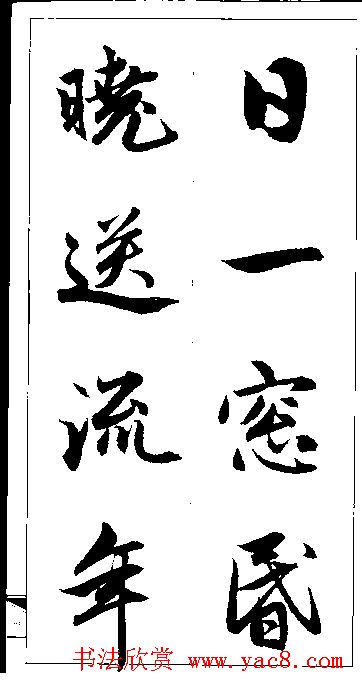 日一窓昬
曉送流年
书法欣赏 www.yac8.com